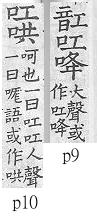 䪦叿㖓
大聲或
作叿㖓
p9
叿哄
呵也一曰叿叿人聲
一曰語或作哄
p10